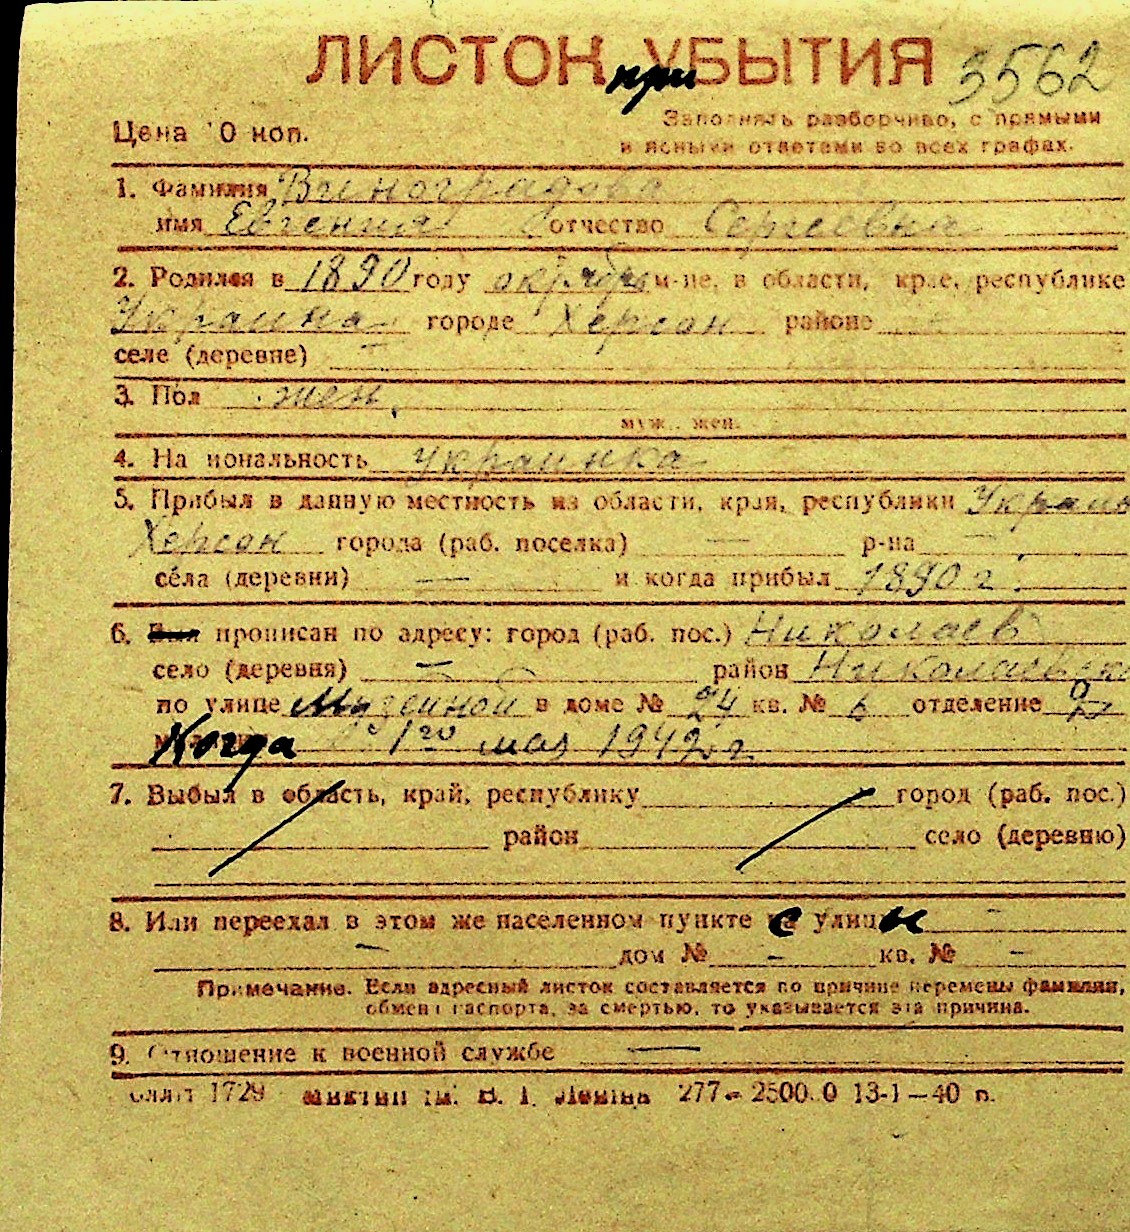 ЛИСТОК при УБЫТИЯ 3562
Цена 10 коп.
Заполнять разборчиво, с прямыми
и ясными ответами во всех графах.
1. Фамилия Виноградова
имя Евгения отчество Сергеевна
2. Родился в 1890 году октябре м-це, в области, крае, республике
Украина городе Херсон районе
селе (деревне)
3. Пол жен.
муж., жен.
4. Национальность украинка
5. Прибыл в данную местность из области, края, республики Украина
Херсон города (раб. поселка) — р-на —
села (деревни) — и когда прибыл 1890 г.
6. Был прописан по адресу: город (раб. пос.) Николаев
село (деревня) — район Николаевск
по улице Музейной в доме № 24 кв. № 6 отделение 2
Когда с 1го мая 1942 г.
7. Выбыл в область, край, республику город (раб. пос.)
район село (деревню)
8. Или переехал в этом же населенном пункте с улицы —
— дом № — кв. № —
Примечание. Если адресный листок составляется по причине перемены фамилии,
обмена паспорта, за смертью, то указывается эта причина.
9. Отношение к военной службе —
1729 им. В. И. Ленина 277 – 2500.0 13-1—40 п.